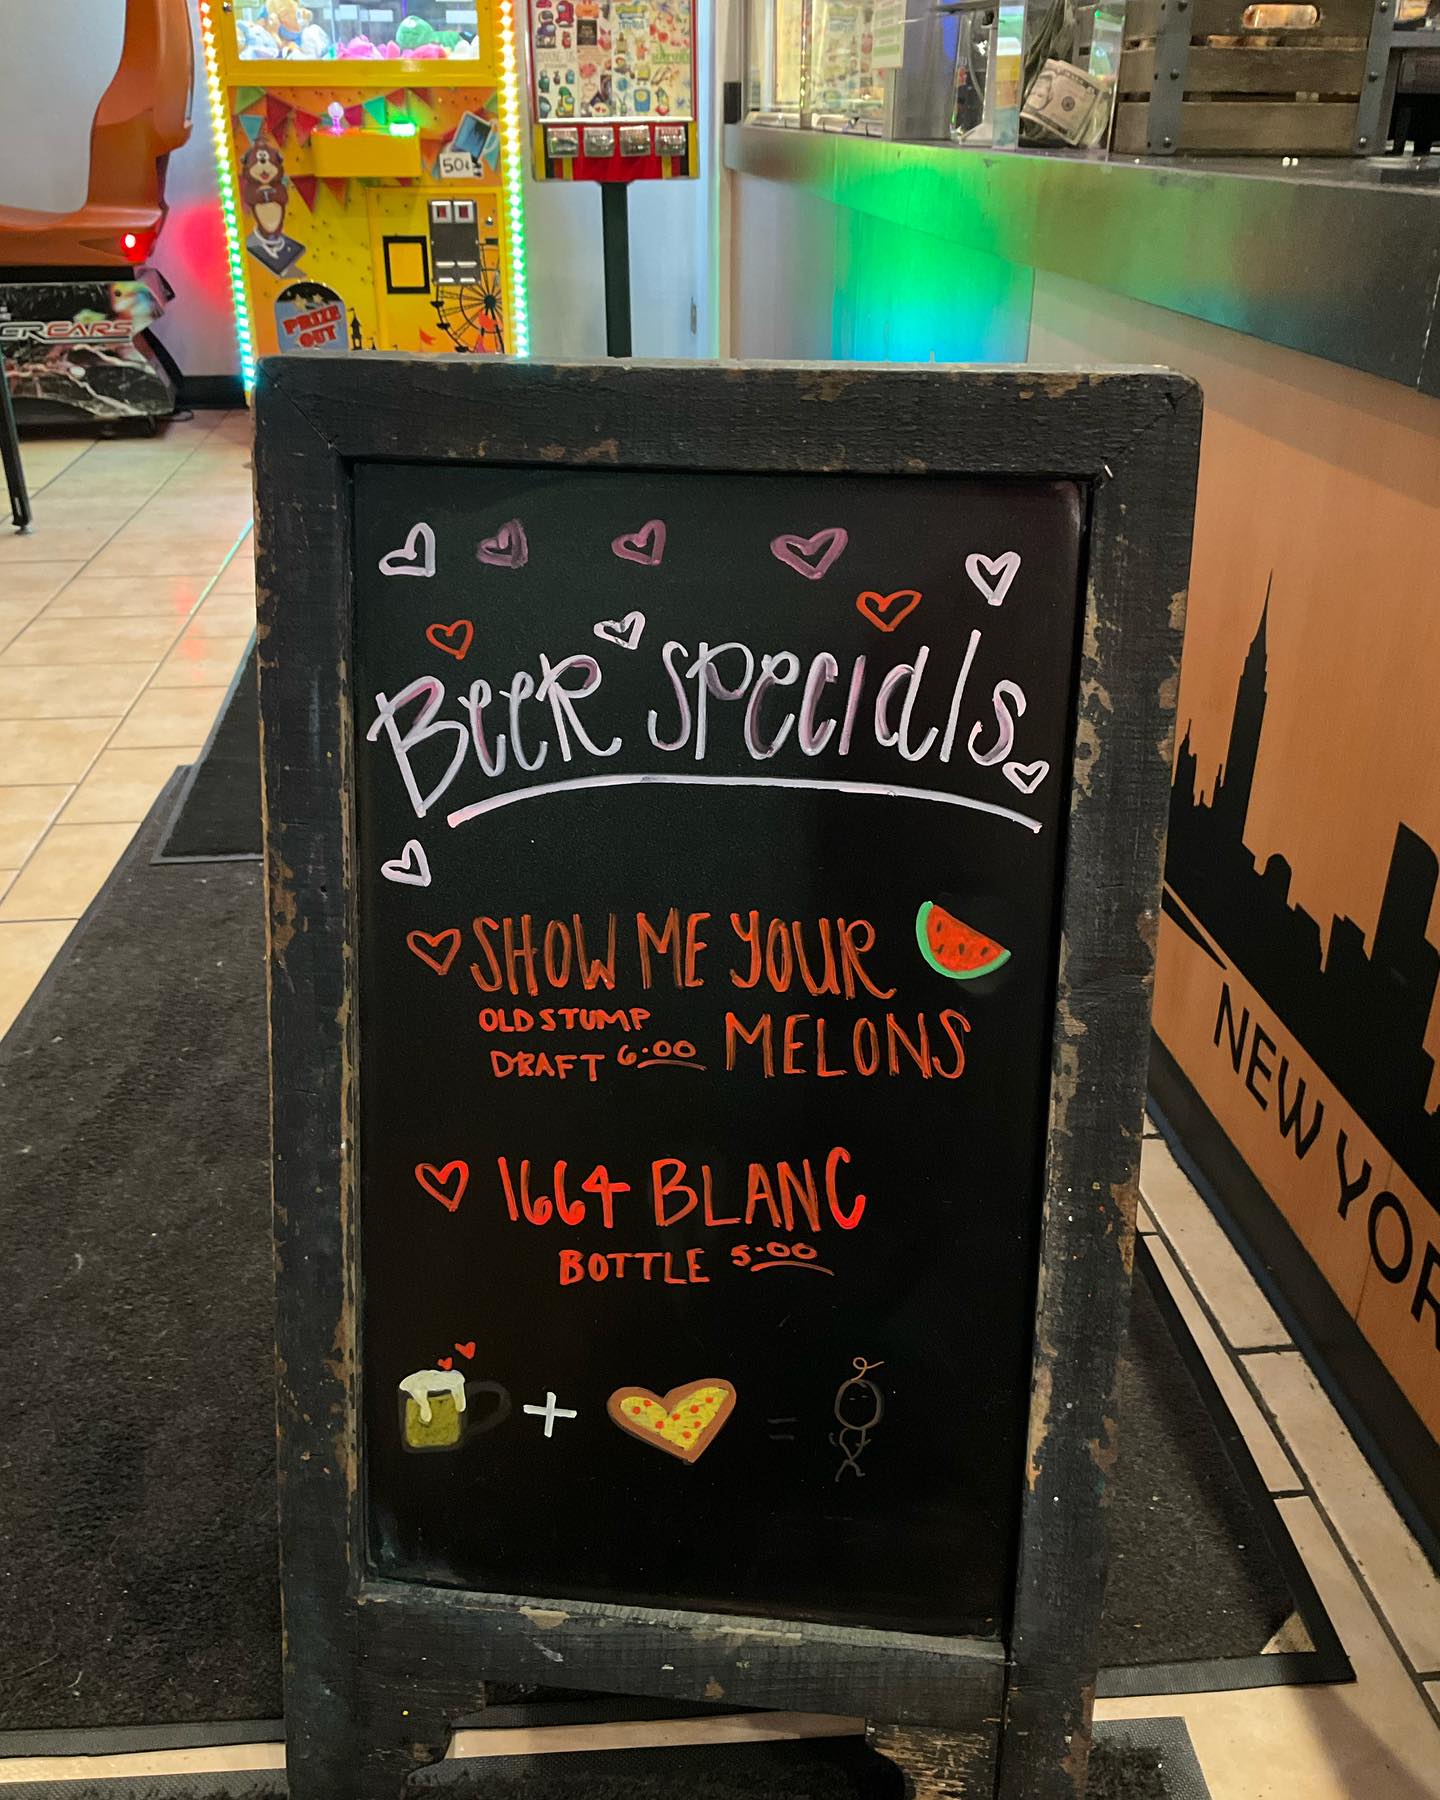 50¢
PRIZE
OUT
ER CARS
Beer Specials
SHOW ME YOUR
MELONS
OLD STUMP
DRAFT 6.00
1664 BLANC
BOTTLE 5.00
+
=
NEW YOR